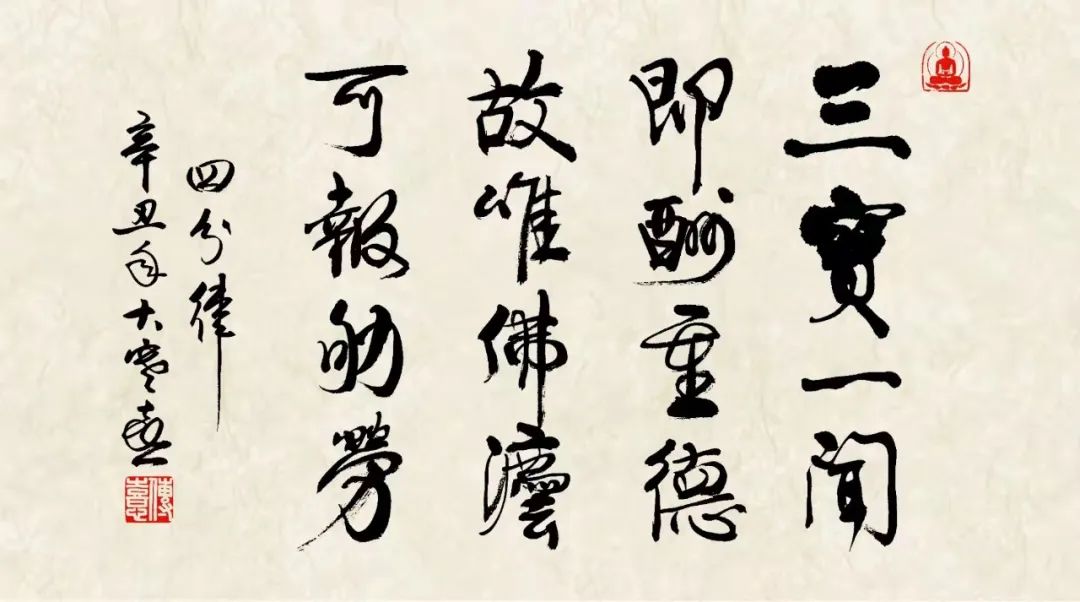 三寶一聞
即酬重德
故唯佛澐
可報劬勞
四分律
辛丑年大寒喜
傳喜